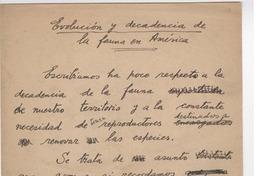 Evolución y decadencia de
la fauna en América
Escribíamos ha poco respecto a la
decadencia de la fauna
de nuestro territorio y a la constante
necesidad de reproductores destinados a
renovar las especies.
Se trata de asunto